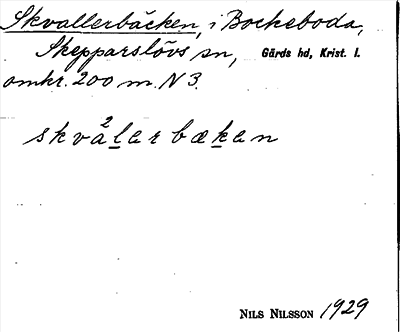 Skvallerbäcken, i Bockeboda,
Skepparslövs sn, Gärds hd, Krist. l.
omkr. 200 m. N 3.
skva²l̲arbæk̲an
NILS NILSSON 1929